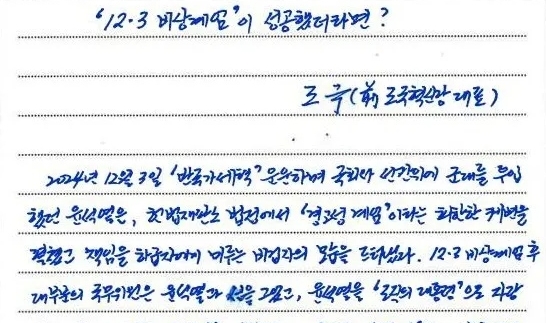 '12·3 비상계엄'이 성공했더라면?
조 국(前 조국혁신당 대표)
2024년 12월 3일 '반국가세력' 운운하며 국회와 선관위에 군대를 투입
했던 윤석열은, 헌법재판소 법정에서 '경고성 계엄'이라는 희한한 궤변을
펼쳤고 책임을 하급자에게 미루는 비겁자의 모습을 드러냈다. 12·3 비상계엄 후
대부분의 국무위원은 윤석열과 선을 그었고, 윤석열을 '조직의 대통령'으로 지칭